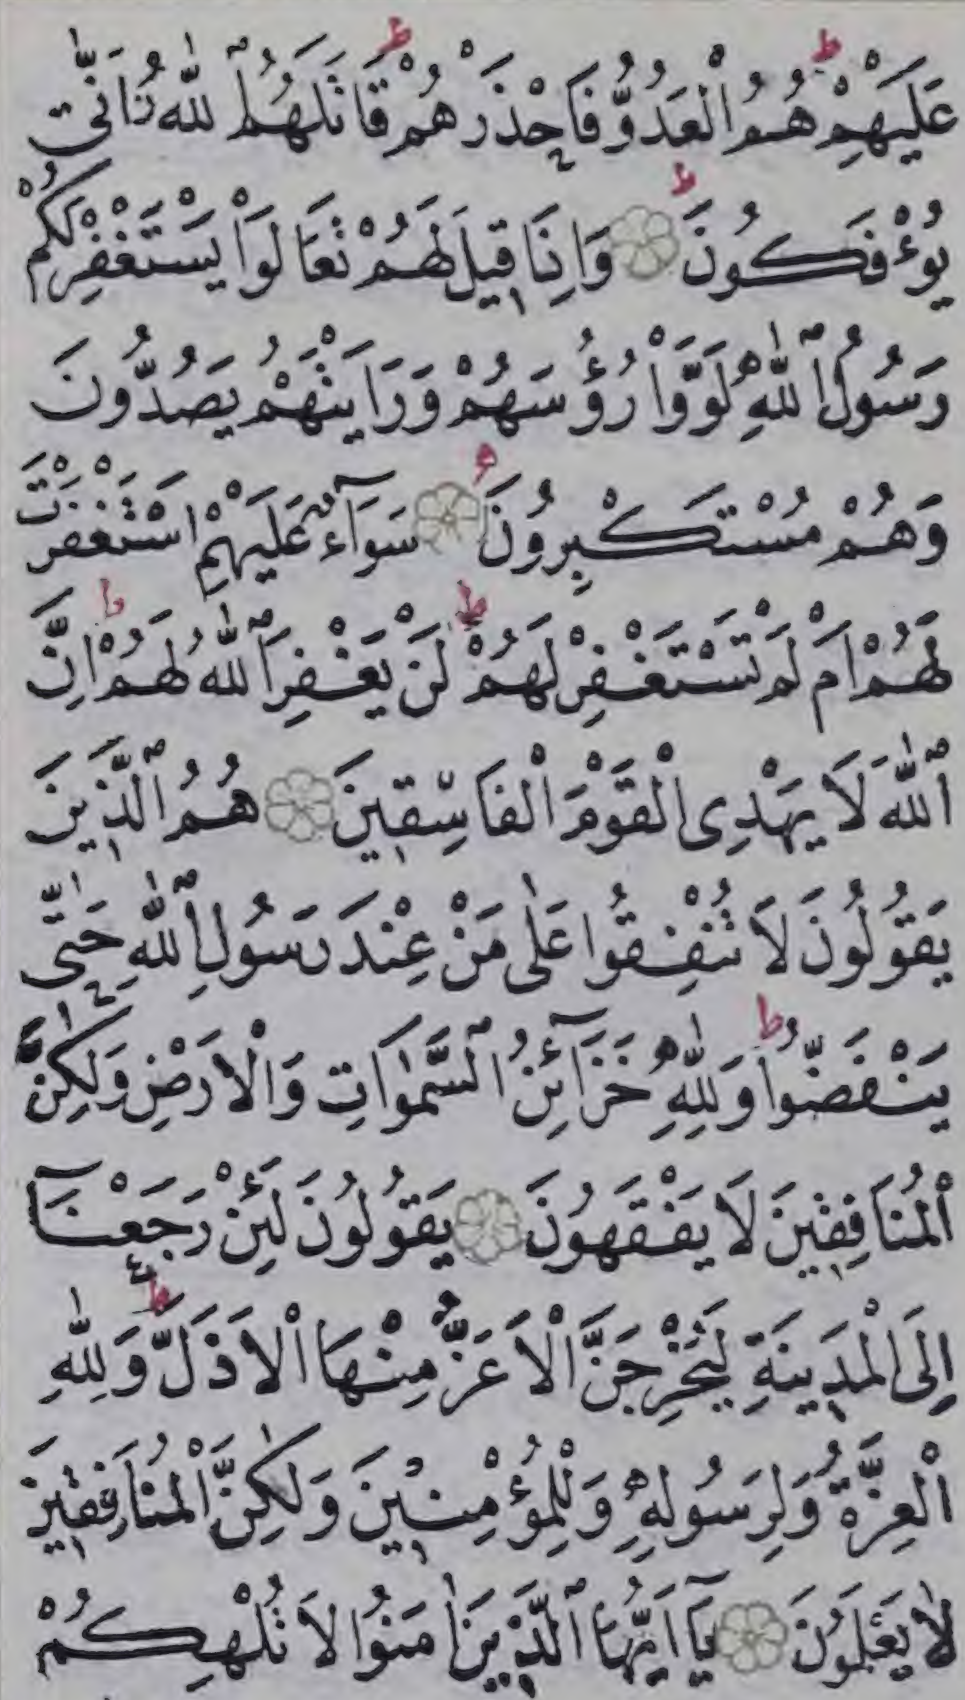 عَلَيْهِمْ هُمُ الْعَدُوُّ فَاحْذَرْهُمْ قَاتَلَهُمُ اللّٰهُ اَنّٰى
يُؤْفَكُونَ وَاِذَا قِيلَ لَهُمْ تَعَالَوْا يَسْتَغْفِرْ لَكُمْ
رَسُولُ اللّٰهِ لَوَّوْا رُؤُسَهُمْ وَرَاَيْتَهُمْ يَصُدُّونَ
وَهُمْ مُسْتَكْبِرُونَ سَوَاۤءٌ عَلَيْهِمْ اَسْتَغْفَرْتَ
لَهُمْ اَمْ لَمْ تَسْتَغْفِرْ لَهُمْ لَنْ يَغْفِرَ اللّٰهُ لَهُمْ اِنَّ
اللّٰهَ لَا يَهْدِى الْقَوْمَ الْفَاسِقِينَ هُمُ الَّذِينَ
يَقُولُونَ لَا تُنْفِقُوا عَلٰى مَنْ عِنْدَ رَسُولِ اللّٰهِ حَتّٰى
يَنْفَضُّوا وَلِلّٰهِ خَزَاۤئِنُ السَّمٰوَاتِ وَالْاَرْضِ وَلٰكِنَّ
الْمُنَافِقِينَ لَا يَفْقَهُونَ يَقُولُونَ لَئِنْ رَجَعْنَاۤ
اِلَى الْمَدِينَةِ لَيُخْرِجَنَّ الْاَعَزُّ مِنْهَا الْاَذَلَّ وَلِلّٰهِ
الْعِزَّةُ وَلِرَسُولِهِ وَلِلْمُؤْمِنِينَ وَلٰكِنَّ الْمُنَافِقِينَ
لَا يَعْلَمُونَ يَاۤ اَيُّهَا الَّذِينَ اٰمَنُوا لَا تُلْهِكُمْ